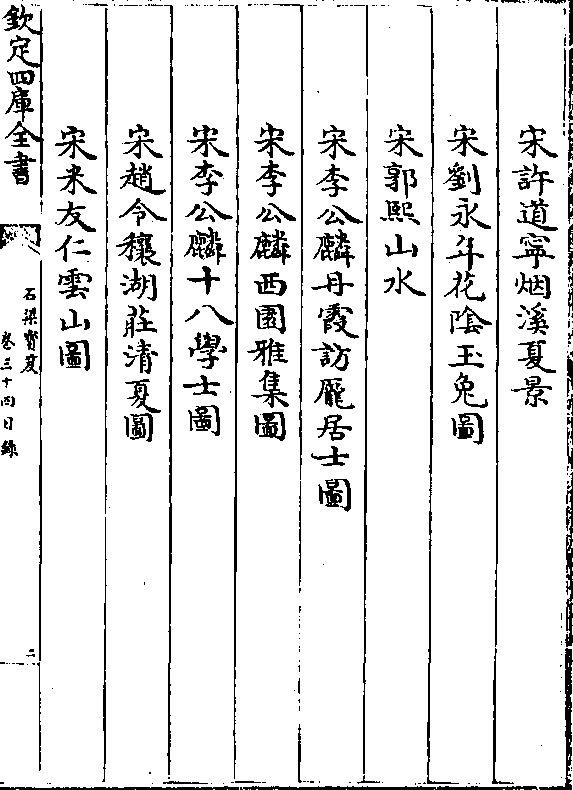 宋許道寧烟溪夏景
宋劉永年花陰玉兔圖
宋郭熙山水
宋李公麟丹霞訪龐居士圖
宋李公麟西園雅集圖
宋李公麟十八學士圖
宋趙令穰湖莊清夏圖
宋米友仁雲山圖
欽定四庫全書
石渠寶笈
卷三十四目錄
二